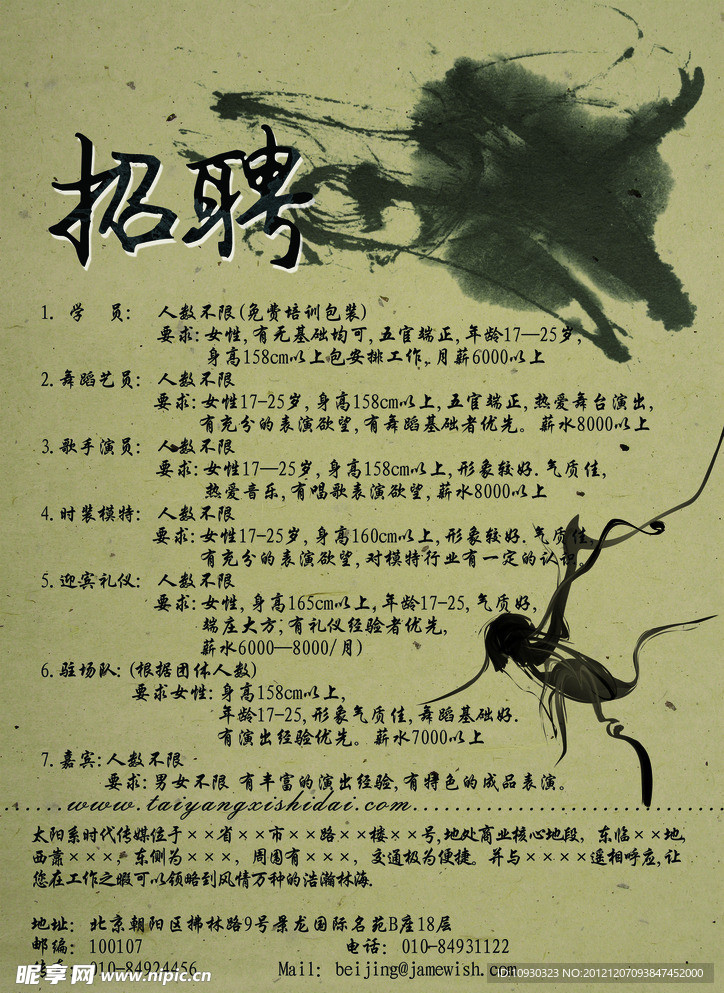 招聘
1. 学 员: 人数不限(免费培训包装)
要求: 女性, 有无基础均可, 五官端正, 年龄17—25岁,
身高158cm以上包安排工作, 月薪6000以上
2. 舞蹈艺员: 人数不限
要求: 女性17-25岁, 身高158cm以上, 五官端正, 热爱舞台演出,
有充分的表演欲望, 有舞蹈基础者优先。 薪水8000以上
3. 歌手演员: 人数不限
要求: 女性17—25岁, 身高158cm以上, 形象较好. 气质佳,
热爱音乐, 有唱歌表演欲望, 薪水8000以上
4. 时装模特: 人数不限
要求: 女性17-25岁, 身高160cm以上, 形象较好. 气质佳,
有充分的表演欲望, 对模特行业有一定的认识。
5. 迎宾礼仪: 人数不限
要求: 女性, 身高165cm以上, 年龄17-25, 气质好,
端庄大方; 有礼仪经验者优先,
薪水6000—8000/月)
6. 驻场队: (根据团体人数)
要求女性: 身高158cm以上,
年龄17-25, 形象气质佳, 舞蹈基础好.
有演出经验优先。 薪水7000以上
7. 嘉宾: 人数不限
要求: 男女不限 有丰富的演出经验, 有特色的成品表演。
......www.taiyangxishidai.com......................
太阳系时代传媒位于××省××市××路××楼××号, 地处商业核心地段, 东临××地,
西靠×××, 东侧为×××, 周围有×××, 交通极为便捷。并与××××遥相呼应, 让
您在工作之暇可以领略到风情万种的浩瀚林海.
地址: 北京朝阳区拂林路9号景龙国际名苑B座18层
邮编: 100107 电话: 010-84931122
010-84924456 Mail: beijing@jamewish.com
昵享网 www.nipic.cn
ID:10930323 NO:20121207093847452000